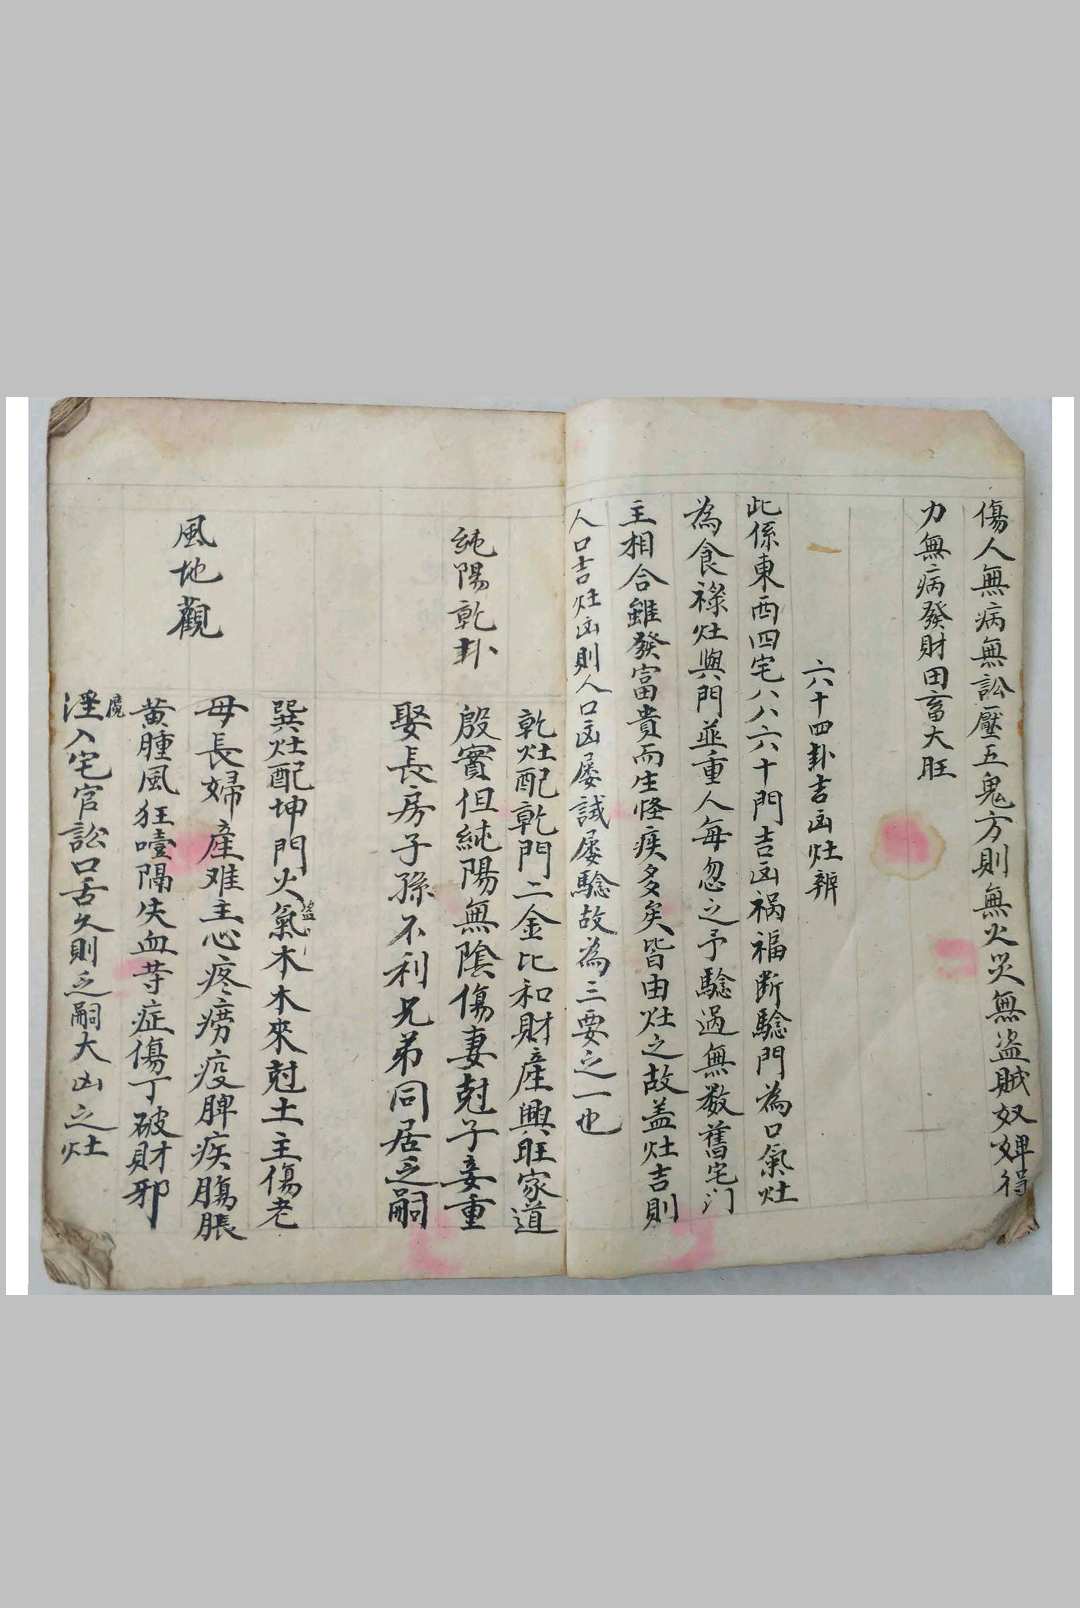 傷人無病無訟壓五鬼方則無火災無盜賊奴婢得
力無病發財田畜大旺
六十四卦吉凶灶辨
此係東西四宅八八六十門吉凶禍福断驗門為口氣灶
為食祿灶與門並重人每忽之予驗過無数舊宅门
主相合雖發富貴而生怪疾多矣皆由灶之故盖灶吉則
人口吉灶凶則人口凶屡試屡驗故為三要之一也
純陽乾卦
乾灶配乾門二金比和財產興旺家道
殷實但純陽無陰傷妻尅子妾重
娶長房子孫不利兄弟同居乏嗣
風地觀
巽灶配坤門火氣盗木木來尅土主傷老
母長婦產难主心疼痨疫脾疾膓脹
黄腫風狂噎隔失血等症傷丁破財邪
魔淫入宅官訟口舌久則乏嗣大凶之灶